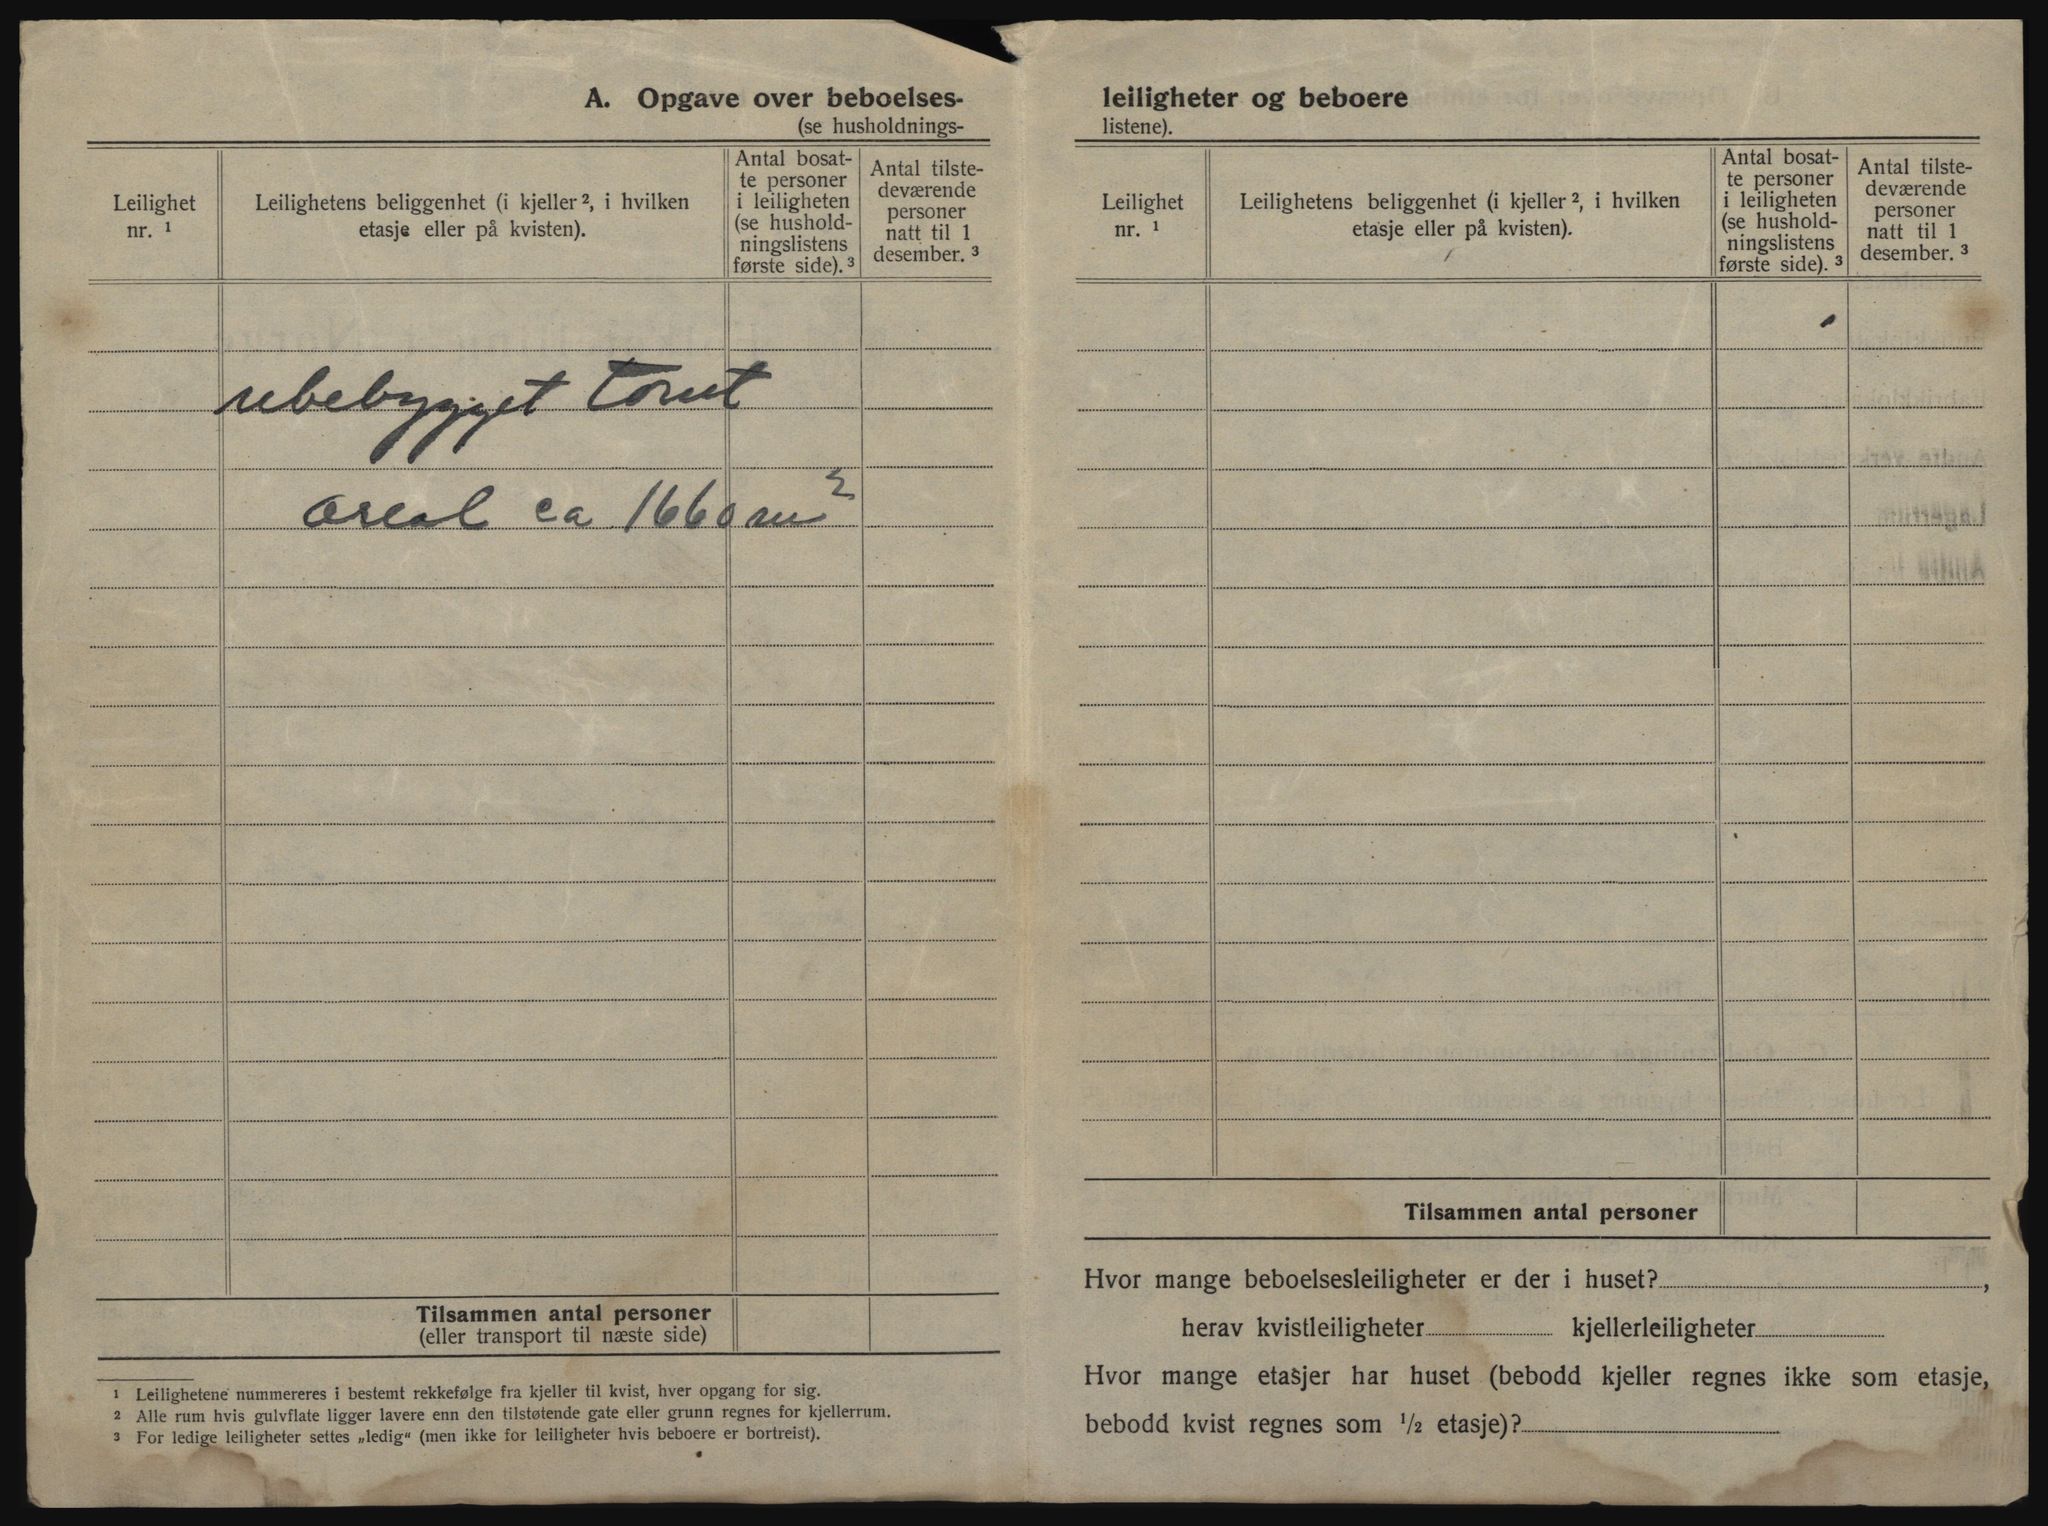 A. Opgave over beboelses-
(se husholdnings-
Leilighet
nr. ¹
Leilighetens beliggenhet (i kjeller ², i hvilken
etasje eller på kvisten).
Antal bosat-
te personer
i leiligheten
(se hushold-
ningslistens
første side). ³
Antal tilste-
deværende
personer
natt til 1
desember. ³
ubebygget tomt
areal ca 1660 m²
Tilsammen antal personer
(eller transport til næste side)
¹ Leilighetene nummereres i bestemt rekkefølge fra kjeller til kvist, hver opgang for sig.
² Alle rum hvis gulvflate ligger lavere enn den tilstøtende gate eller grunn regnes for kjellerrum.
³ For ledige leiligheter settes „ledig“ (men ikke for leiligheter hvis beboere er bortreist).
leiligheter og beboere
listene).
Leilighet
nr. ¹
Leilighetens beliggenhet (i kjeller ², i hvilken
etasje eller på kvisten).
Antal bosat-
te personer
i leiligheten
(se hushold-
ningslistens
første side). ³
Antal tilste-
deværende
personer
natt til 1
desember. ³
Tilsammen antal personer
Hvor mange beboelsesleiligheter er der i huset?,
herav kvistleiligheter kjellerleiligheter
Hvor mange etasjer har huset (bebodd kjeller regnes ikke som etasje,
bebodd kvist regnes som ½ etasje)?